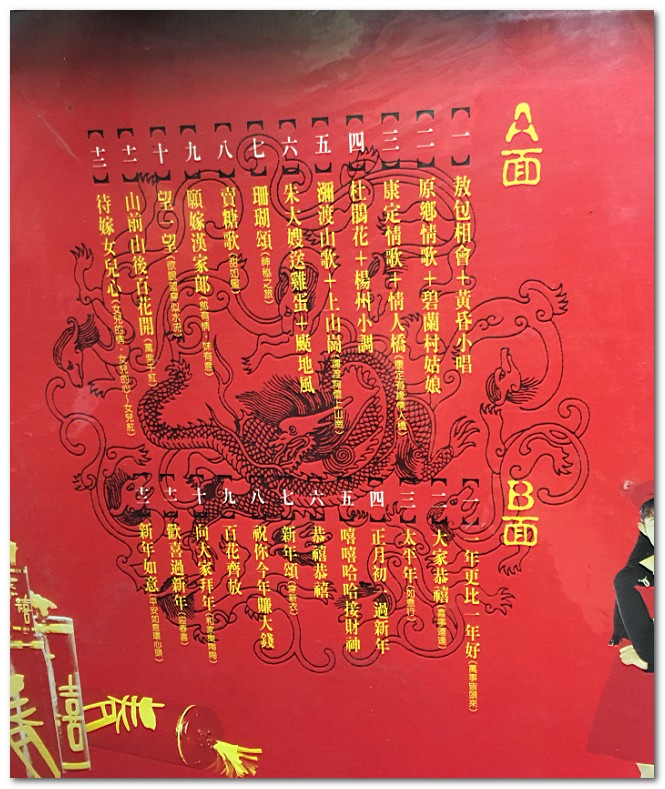 A面
【一】敖包相會+黃昏小唱
【二】原鄉情歌+碧蘭村姑娘
【三】康定情歌+情人橋
【四】杜鵑花+楊州小調
【五】瀰渡山歌+上山崗
【六】朱大嫂送雞蛋+颳地風
【七】珊瑚頌(神秘之旅)
【八】賣糖歌(甜如蜜)
【九】願嫁漢家郎(郎有情~妹有意)
【十】望一望(欲眼望穿似水流)
【十一】山前山後百花開(萬紫千紅)
【十二】待嫁女兒心(女兒的情、女兒的心~女兒紅)
B面
【一】一年更比一年好(萬事皆頭來)
【二】大家恭禧(喜事連連)
【三】太平年(如意行)
【四】正月初一過新年
【五】嘻嘻哈哈接財神
【六】恭禧恭禧
【七】新年頌(穿新衣)
【八】祝你今年賺大錢
【九】百花齊放
【十】向大家拜年
【十一】歡喜過新年(迎春喜)
【十二】新年如意(平安如意環心頭)
囍
春
囍
春